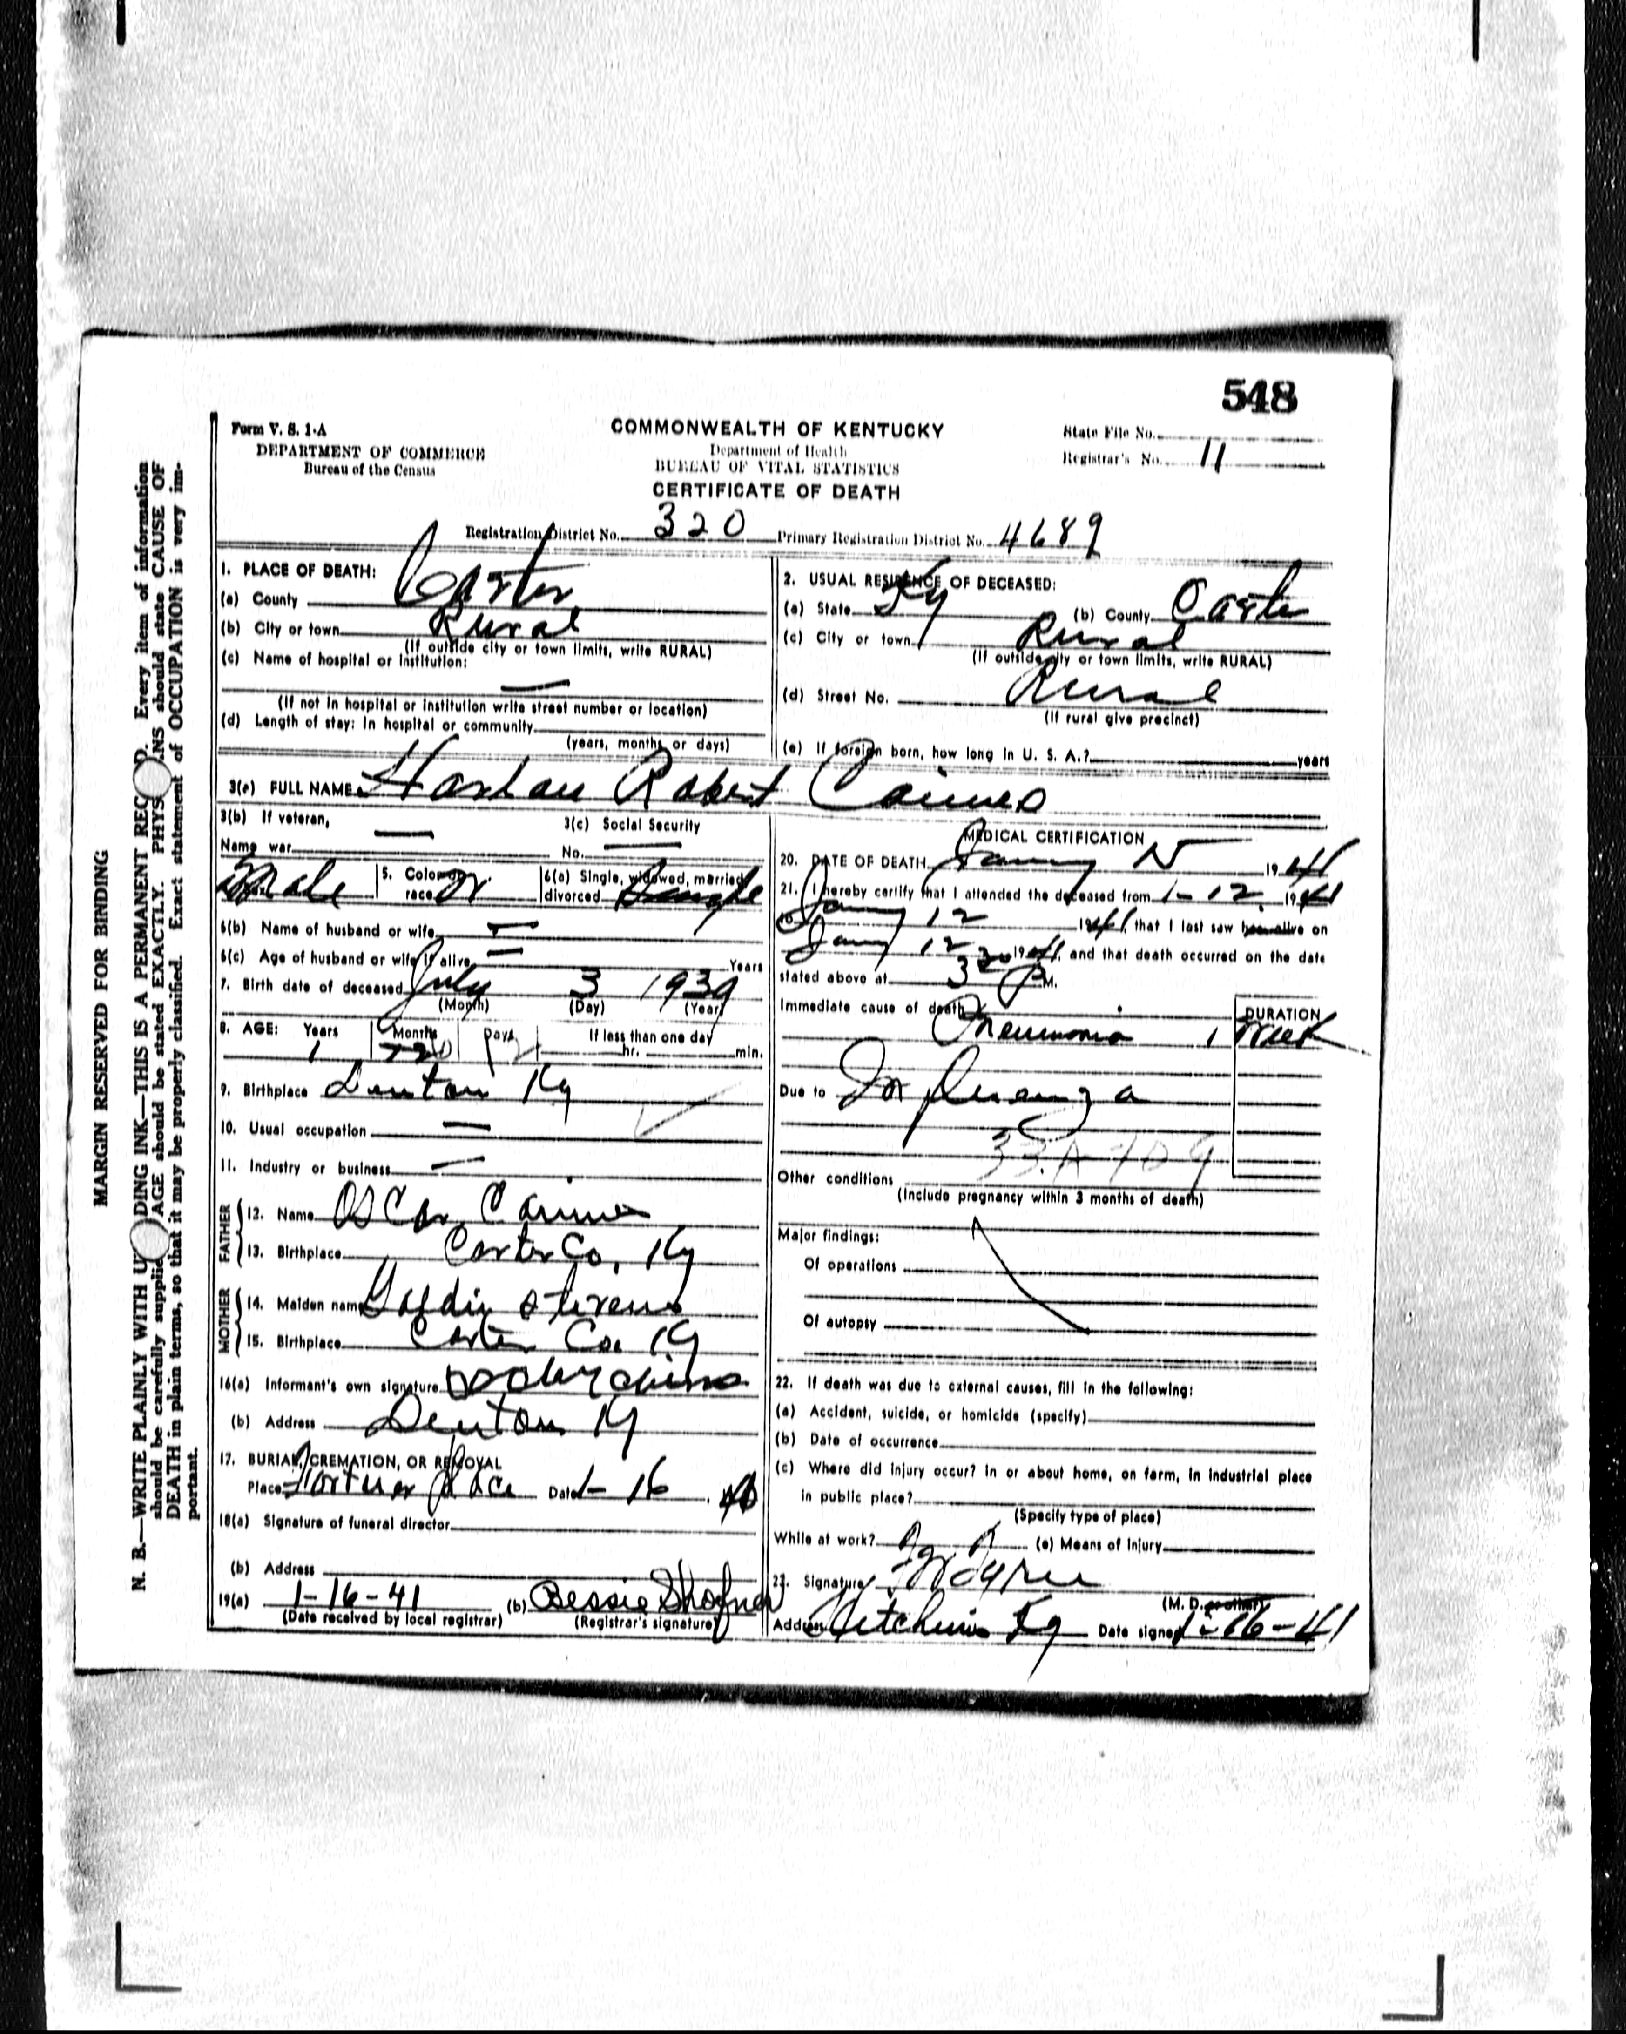 548
Form V. S. 1-A
DEPARTMENT OF COMMERCE
Bureau of the Census
COMMONWEALTH OF KENTUCKY
Department of Health
BUREAU OF VITAL STATISTICS
CERTIFICATE OF DEATH
State File No.
Registrar's No. 11
Registration District No. 320 Primary Registration District No. 4689
MARGIN RESERVED FOR BINDING
N. B.—WRITE PLAINLY WITH UNFADING INK—THIS IS A PERMANENT RECORD. Every item of information
should be carefully supplied. AGE should be stated EXACTLY. PHYSICIANS should state CAUSE OF
DEATH in plain terms, so that it may be properly classified. Exact statement of OCCUPATION is very im-
portant.
1. PLACE OF DEATH:
(a) County Carter
(b) City or town Rural
(If outside city or town limits, write RURAL)
(c) Name of hospital or institution:
—
(If not in hospital or institution write street number or location)
(d) Length of stay: In hospital or community
(years, months or days)
2. USUAL RESIDENCE OF DECEASED:
(a) State Ky (b) County Carter
(c) City or town Rural
(If outside city or town limits, write RURAL)
(d) Street No. Rural
(If rural give precinct)
(e) If foreign born, how long in U. S. A.? years
3(a) FULL NAME Harlan Robert
3(b) If veteran,
Name war —
3(c) Social Security
No. —
Male 5. Color or race 6(a) Single, widowed, married, divorced Single
6(b) Name of husband or wife —
6(c) Age of husband or wife if alive — Years
7. Birth date of deceased July 3 1939
(Month) (Day) (Year)
8. AGE: Years 1 Months Days If less than one day
hr. min.
9. Birthplace Denton Ky
10. Usual occupation —
11. Industry or business —
FATHER
12. Name Oscar
13. Birthplace Carter Co, Ky
MOTHER
14. Maiden name Goldie Stevens
15. Birthplace Carter Co. Ky
16(a) Informant's own signature
(b) Address Denton Ky
17. BURIAL, CREMATION, OR REMOVAL
Place place Date 1-16
18(a) Signature of funeral director
(b) Address
19(a) 1-16-41 (b) Bessie
(Date received by local registrar) (Registrar's signature)
MEDICAL CERTIFICATION
20. DATE OF DEATH 1941
21. I hereby certify that I attended the deceased from 1-12 1941
to 12 1941, that I last saw h alive on
12 1941, and that death occurred on the date
stated above at 3 30 P M.
Immediate cause of death DURATION
Pneumonia 1 Week
Due to Influenza
Other conditions
(Include pregnancy within 3 months of death)
Major findings:
Of operations
Of autopsy
22. If death was due to external causes, fill in the following:
(a) Accident, suicide, or homicide (specify)
(b) Date of occurrence
(c) Where did injury occur? In or about home, on farm, in industrial place
in public place?
(Specify type of place)
While at work? (e) Means of Injury
23. Signature
(M. D. or other)
Address Hitchins Ky Date signed 1-16-41